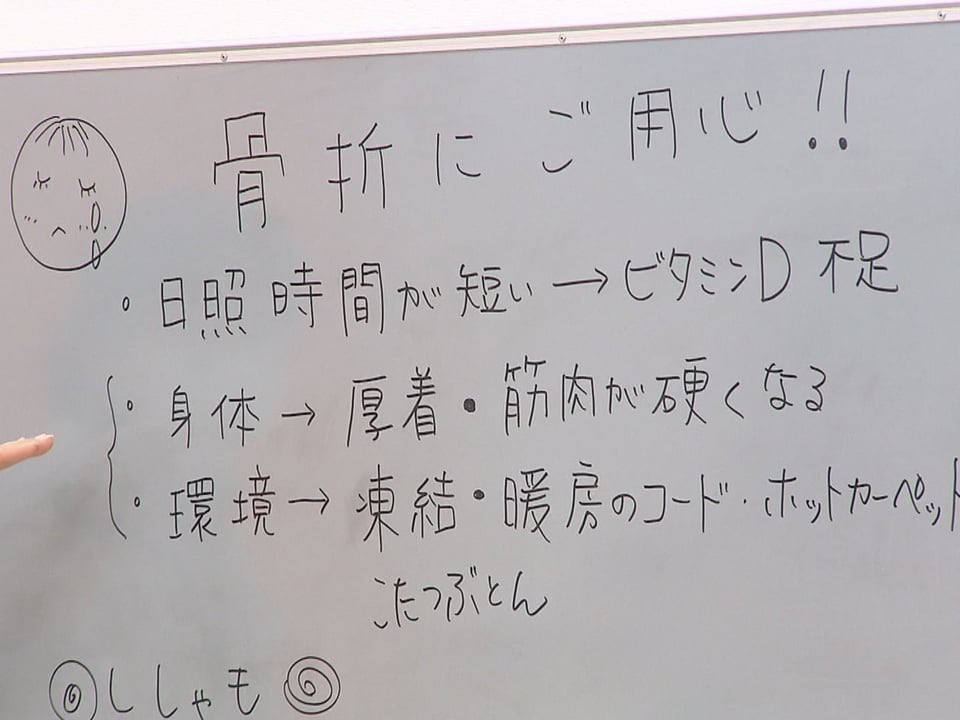 骨折にご用心!!
・日照時間が短い→ビタミンD不足
・身体→厚着・筋肉が硬くなる
・環境→凍結・暖房のコード・ホットカーペット
こたつぶとん
◎ししゃも◎